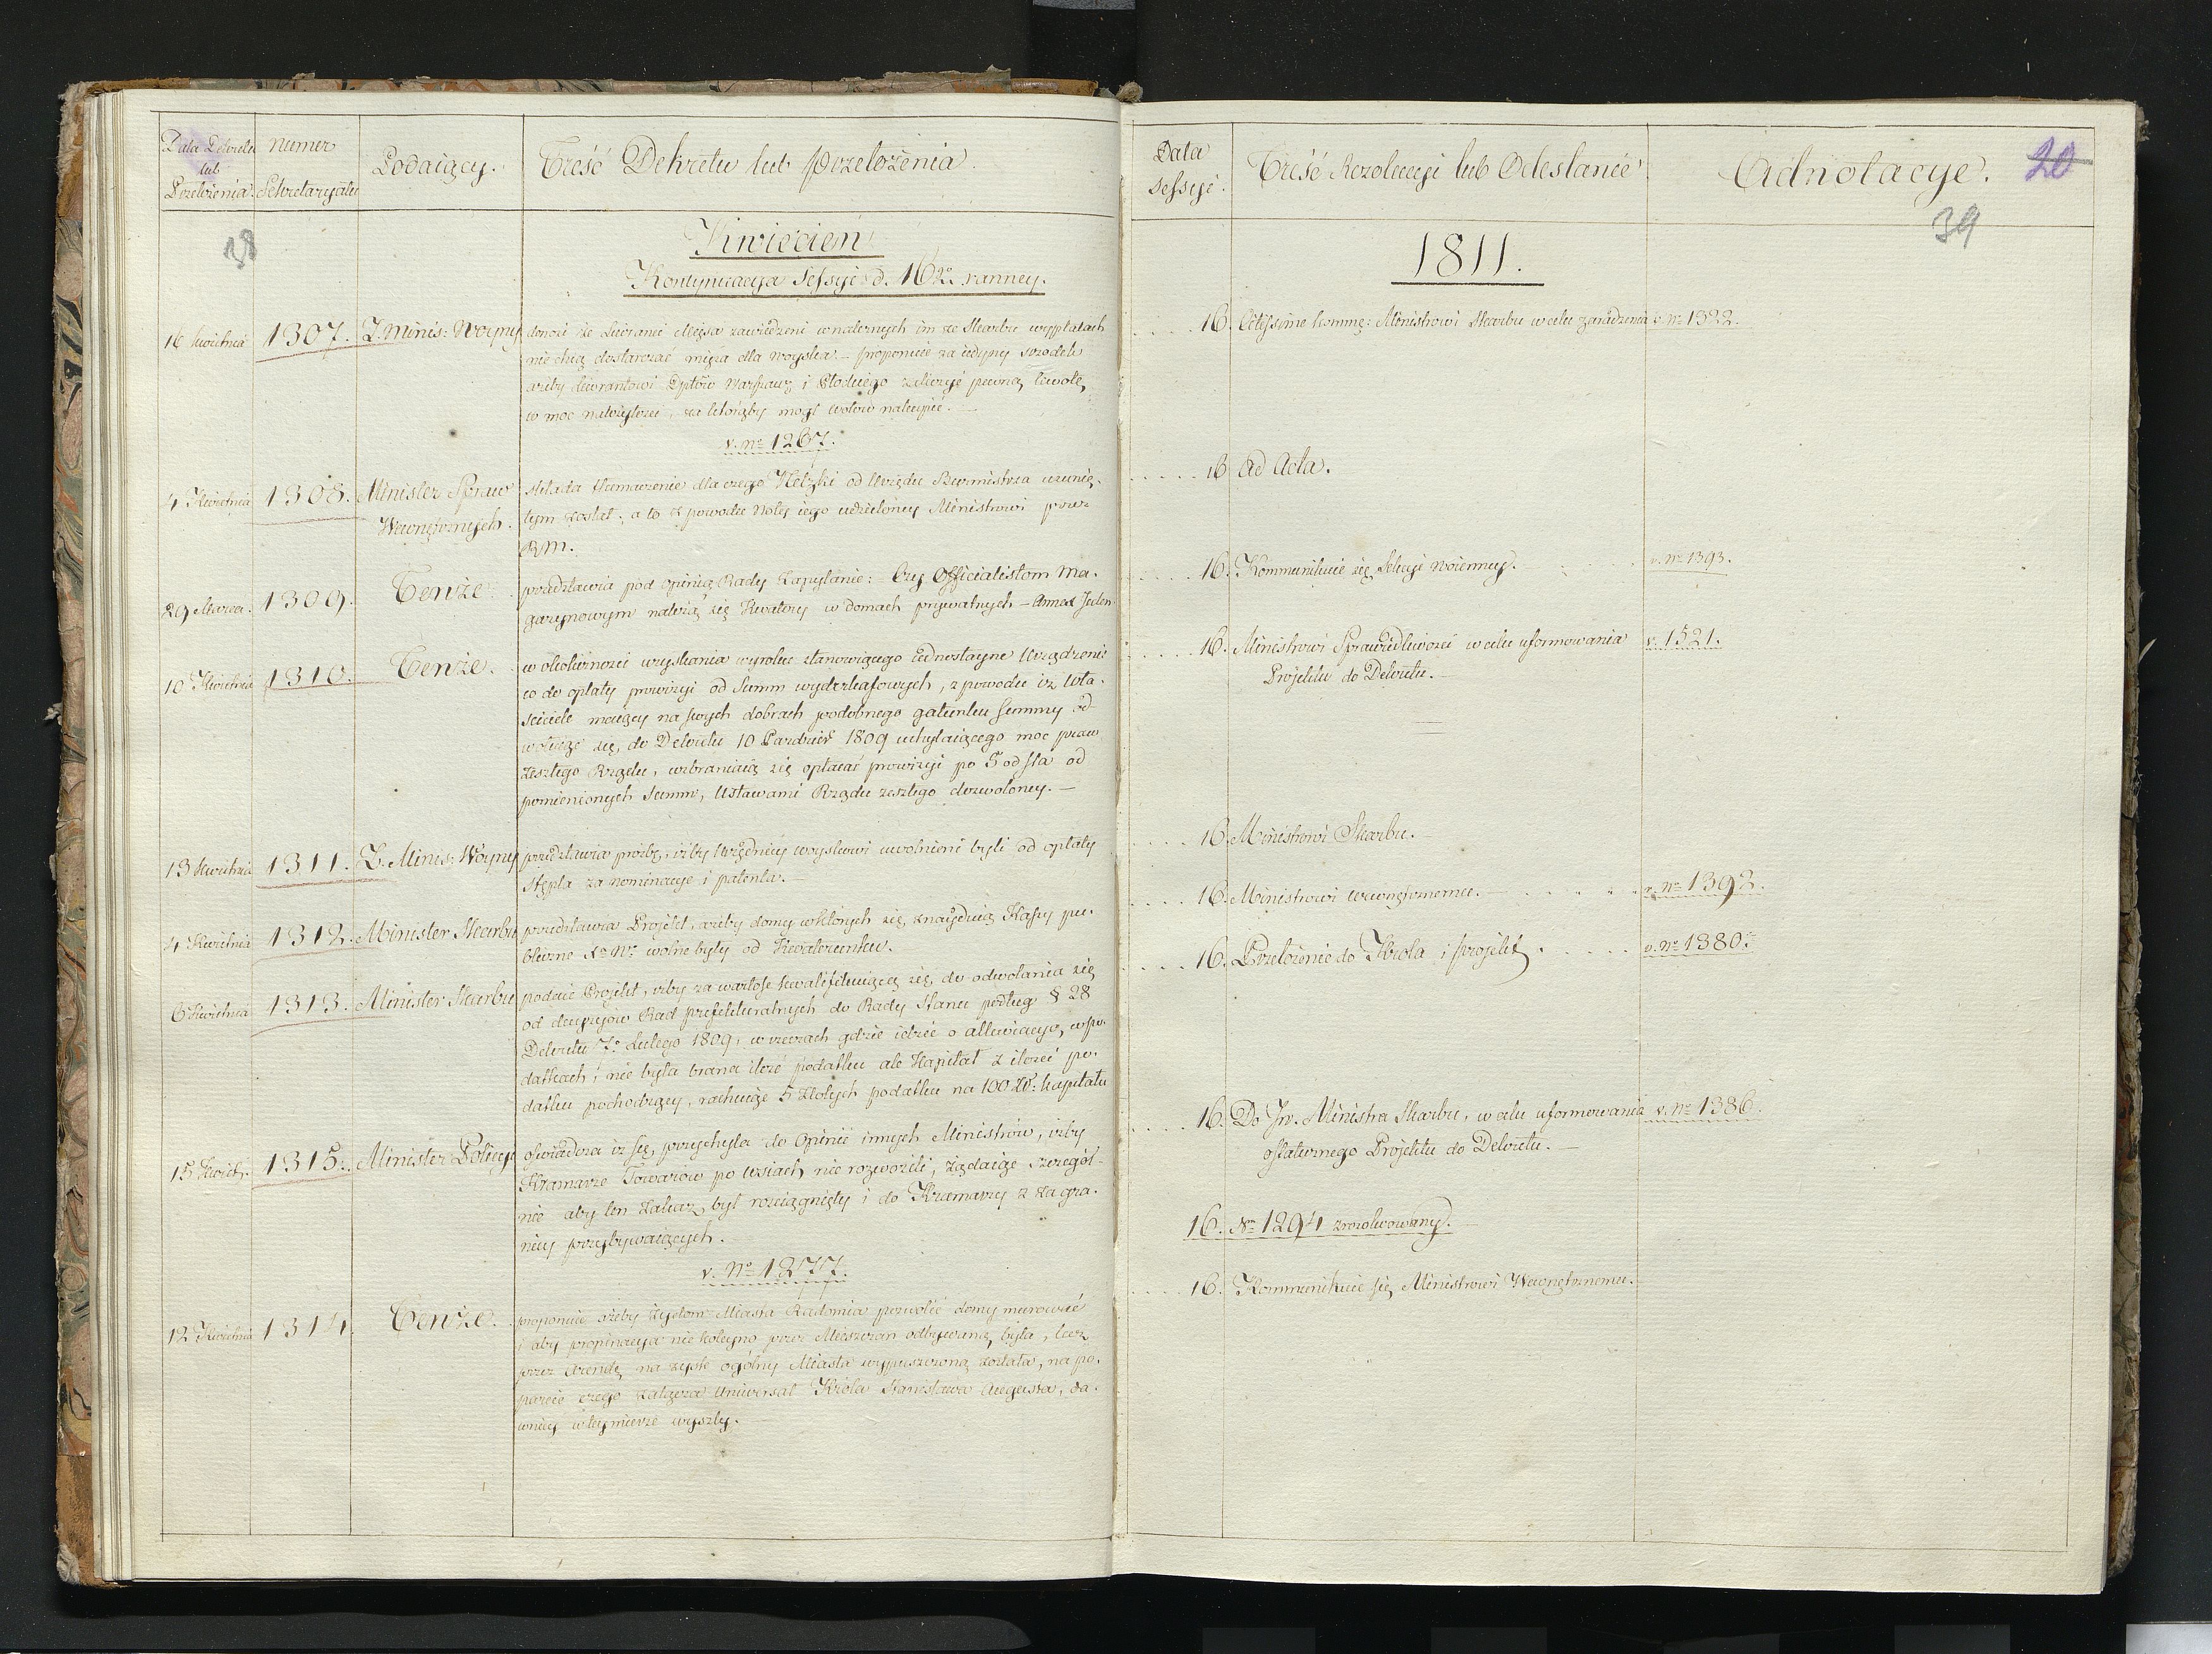 Data Dekretu
lub
Przełożenia.
numer
Sekretaryatu
Podaiący.
Treść Dekretu lub przełożenia.
38
Kwiecień
Kontynuacya Sessyi d. 16º ranney.
16 Kwietnia
1307.
Z. Minis: Woyny
donosi że Liwranci Mięsa zawiedzeni w należnych im ze Skarbu wypłatach
nie chcą dostarczać mięsa dla woyska. – proponuie za iedyny srzodek
ażeby Liwrantowi Dptów Warszawz i Płockiego zaliczyć pewną kwotę,
w moc należytości, za którąby mógł wołów nakupić. –
v. nº 1267.
4 Kwietnia
1308.
Minister Spraw
Wewnętrznych.
składa tłumaczenie dla czego od Urzędu Burmistrza usunię-
tym został, a to z powodu Noty iego udzieloney Ministrowi przez
RM.
29 Marca.
1309.
Tenże.
przedstawia pod opinią Rady Zapytanie: Czy Officialistom Ma-
gazynowym należą się Kwatery w domach prywatnych – Annex Jeden
10 Kwietnia
1310.
Tenże.
w okoliczności uzyskania wyroku stanowiącego iednostayne Urządzenie
co do opłaty prowizyi od Summ wyderkafowych, z powodu iż Wła-
ściciele maiący na swych dobrach podobnego gatunku Summy od-
wołuiąc się do Dekretu 10 Paździer 1809 uchylaiącego moc praw
zeszłego Rządu, wzbraniaią się opłacać prowizyi po 5 od sta od
pomienionych Summ, Ustawami Rządu zeszłego dozwoloney. –
13 Kwietnia
1311.
Z. Minis: Woyny
przedstawia prozbę, iżby Urzędnicy woyskowi uwolnieni byli od opłaty
stępla za nominacye i patenta. –
4 Kwietnia
1312.
Minister Skarbu
przedstawia Projekt, ażeby domy w których się znayduią Kassy pu-
bliczne wolne były od Kwaterunku.
6 Kwietnia
1313.
Minister Skarbu
podaie Projekt, iżby za wartość kwalifikuiącą się do odwołania się
od decyzyiów Rad prefekturalnych do Rady Stanu podług § 28
Dekretu 7º Lutego 1809, w rzeczach gdzie idzie o allewiacyą w po-
datkach, nie była brana ilość podatku ale Kapitał z ilości po-
datku pochodzący, rachuiąc 5 Złotych podatku na 100 Zł: kapitału
15 Kwiet.
1315.
Minister Policyi
oświadcza iż się przychyla do Opinii innych Ministrów, iżby
Kramarze Towarów po wsiach nie rozwozili, żądaiąc szczegól-
nie aby ten zakaz był rościągnięty i do Kramarzy z zagra-
nicy przybywaiących.
v. Nº 1277.
12 Kwietnia
1314.
Tenże.
proponuie ażeby Żydom Miasta Radomia pozwolić domy murować
i aby propinacya nie koleyno przez Mieszczan odbywaną była, lecz
przez Arendę na zysk ogólny Miasta wypuszczoną została, na po-
parcie czego załącza Uniwersał Króla Stanisława Augusta, da-
wniey w tey mierze wyszły.
Data
Sessyi.
Treść Rezolucyi lub Odesłanie
Adnotacye.
20
39
1811.
16. Citissime Kommę: Ministrowi Skarbu w celu zarządzenia v. Nº 1322.
16 Ad Acta.
16. Kommunikuie się Sekcyi woienney. v. Nº 1393.
16. Ministrowi Sprawiedliwości w celu uformowania v. 1521.
Projektu do Dekretu. –
16. Ministrowi Skarbu. –
16. Ministrowi wewnętrznemu. – v. Nº 1392.
16. Przełożenie do Króla i projekt. v. Nº 1380.
16. Do Jw. Ministra Skarbu, w celu uformowania v. Nº 1386.
ostatecznego Projektu do Dekretu. –
16. Nº 1294 zrezolwowany. –
16. Kommunikuie się Ministrowi Wewnętrznemu.